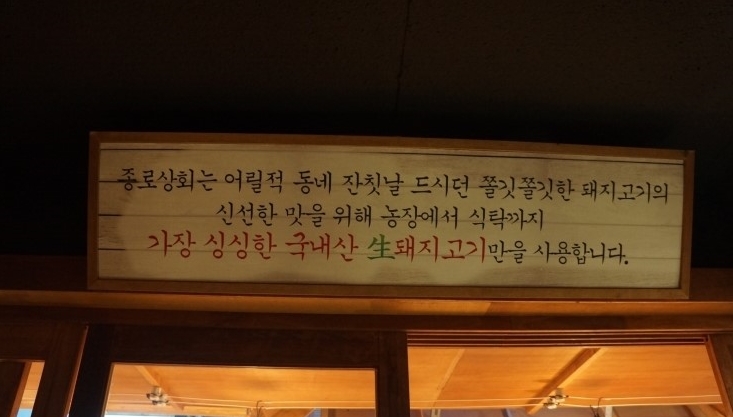 종로상회는 어릴적 동네 잔칫날 드시던 쫄깃쫄깃한 돼지고기의
신선한 맛을 위해 농장에서 식탁까지
가장 싱싱한 국내산 生돼지고기만을 사용합니다.